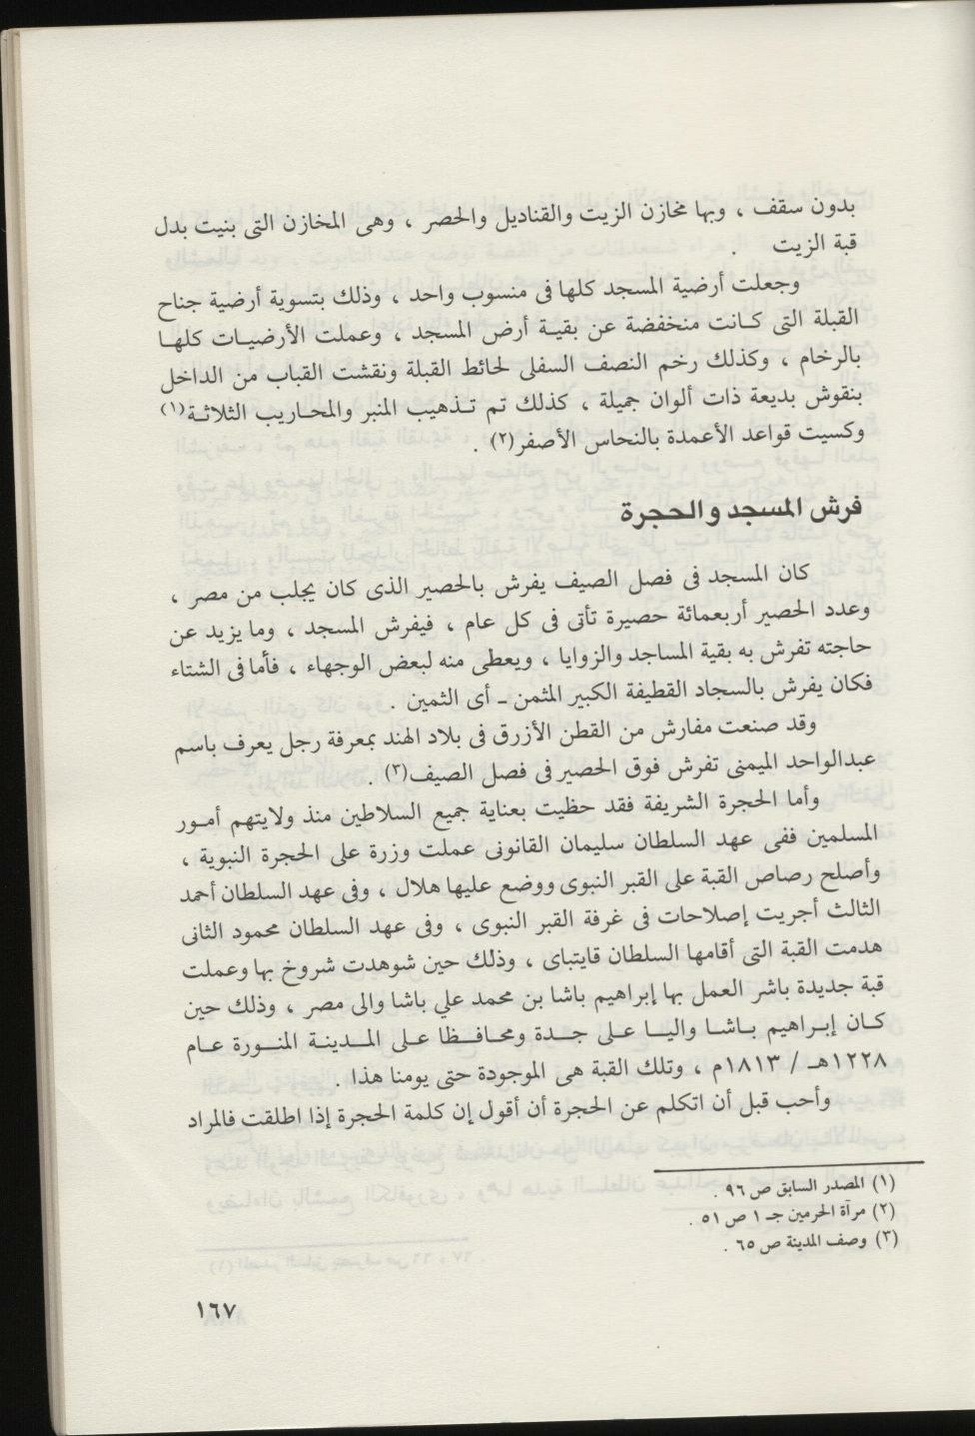 بدون سقف ، وبها مخازن الزيت والقناديل والحصر ، وهى المخازن التى بنيت بدل
قبة الزيت .
وجعلت أرضية المسجد كلها فى منسوب واحد ، وذلك بتسوية أرضية جناح
القبلة التى كانت منخفضة عن بقية أرض المسجد ، وعملت الأرضيات كلها
بالرخام ، وكذلك رخم النصف السفلى لحائط القبلة ونقشت القباب من الداخل
بنقوش بديعة ذات ألوان جميلة ، كذلك تم تذهيب المنبر والمحاريب الثلاثة(١)
وكسيت قواعد الأعمدة بالنحاس الأصفر(٢) .
فرش المسجد والحجرة
كان المسجد فى فصل الصيف يفرش بالحصير الذى كان يجلب من مصر ،
وعدد الحصير أربعمائة حصيرة تأتى فى كل عام ، فيفرش المسجد ، وما يزيد عن
حاجته تفرش به بقية المساجد والزوايا ، ويعطى منه لبعض الوجهاء ، فأما فى الشتاء
فكان يفرش بالسجاد القطيفة الكبير المثمن ـ أى الثمين .
وقد صنعت مفارش من القطن الأزرق فى بلاد الهند بمعرفة رجل يعرف باسم
عبدالواحد الميمنى تفرش فوق الحصير فى فصل الصيف(٣) .
وأما الحجرة الشريفة فقد حظيت بعناية جميع السلاطين منذ ولايتهم أمور
المسلمين ففى عهد السلطان سليمان القانونى عملت وزرة على الحجرة النبوية ،
وأصلح رصاص القبة على القبر النبوى ووضع عليها هلال ، وفى عهد السلطان أحمد
الثالث أجريت إصلاحات فى غرفة القبر النبوى ، وفى عهد السلطان محمود الثانى
هدمت القبة التى أقامها السلطان قايتباى ، وذلك حين شوهدت شروخ بها وعملت
قبة جديدة باشر العمل بها إبراهيم باشا بن محمد علي باشا والى مصر ، وذلك حين
كان إبراهيم باشا واليا على جدة ومحافظا على المدينة المنورة عام
١٢٢٨هـ / ١٨١٣م ، وتلك القبة هى الموجودة حتى يومنا هذا .
وأحب قبل أن اتكلم عن الحجرة أن أقول إن كلمة الحجرة إذا اطلقت فالمراد
(١) المصدر السابق ص ٩٦ .
(٢) مرآة الحرمين جـ ١ ص ٥١ .
(٣) وصف المدينة ص ٦٥ .
١٦٧